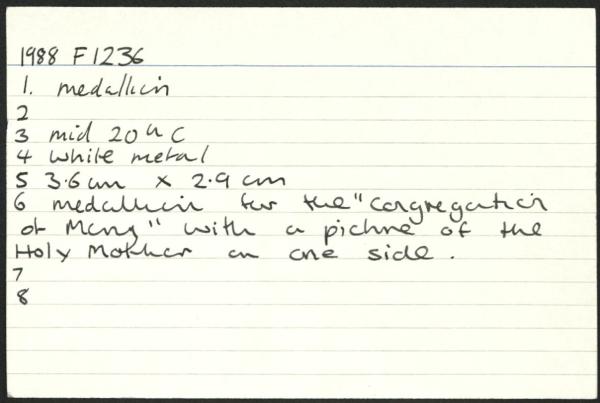 1988 F1236
1. medallion
2
3 mid 20th C
4 white metal
5 3.6cm x 2.9 cm
6 medallion for the "Congregation
of Mary" with a picture of the
Holy Mother on one side.
7
8